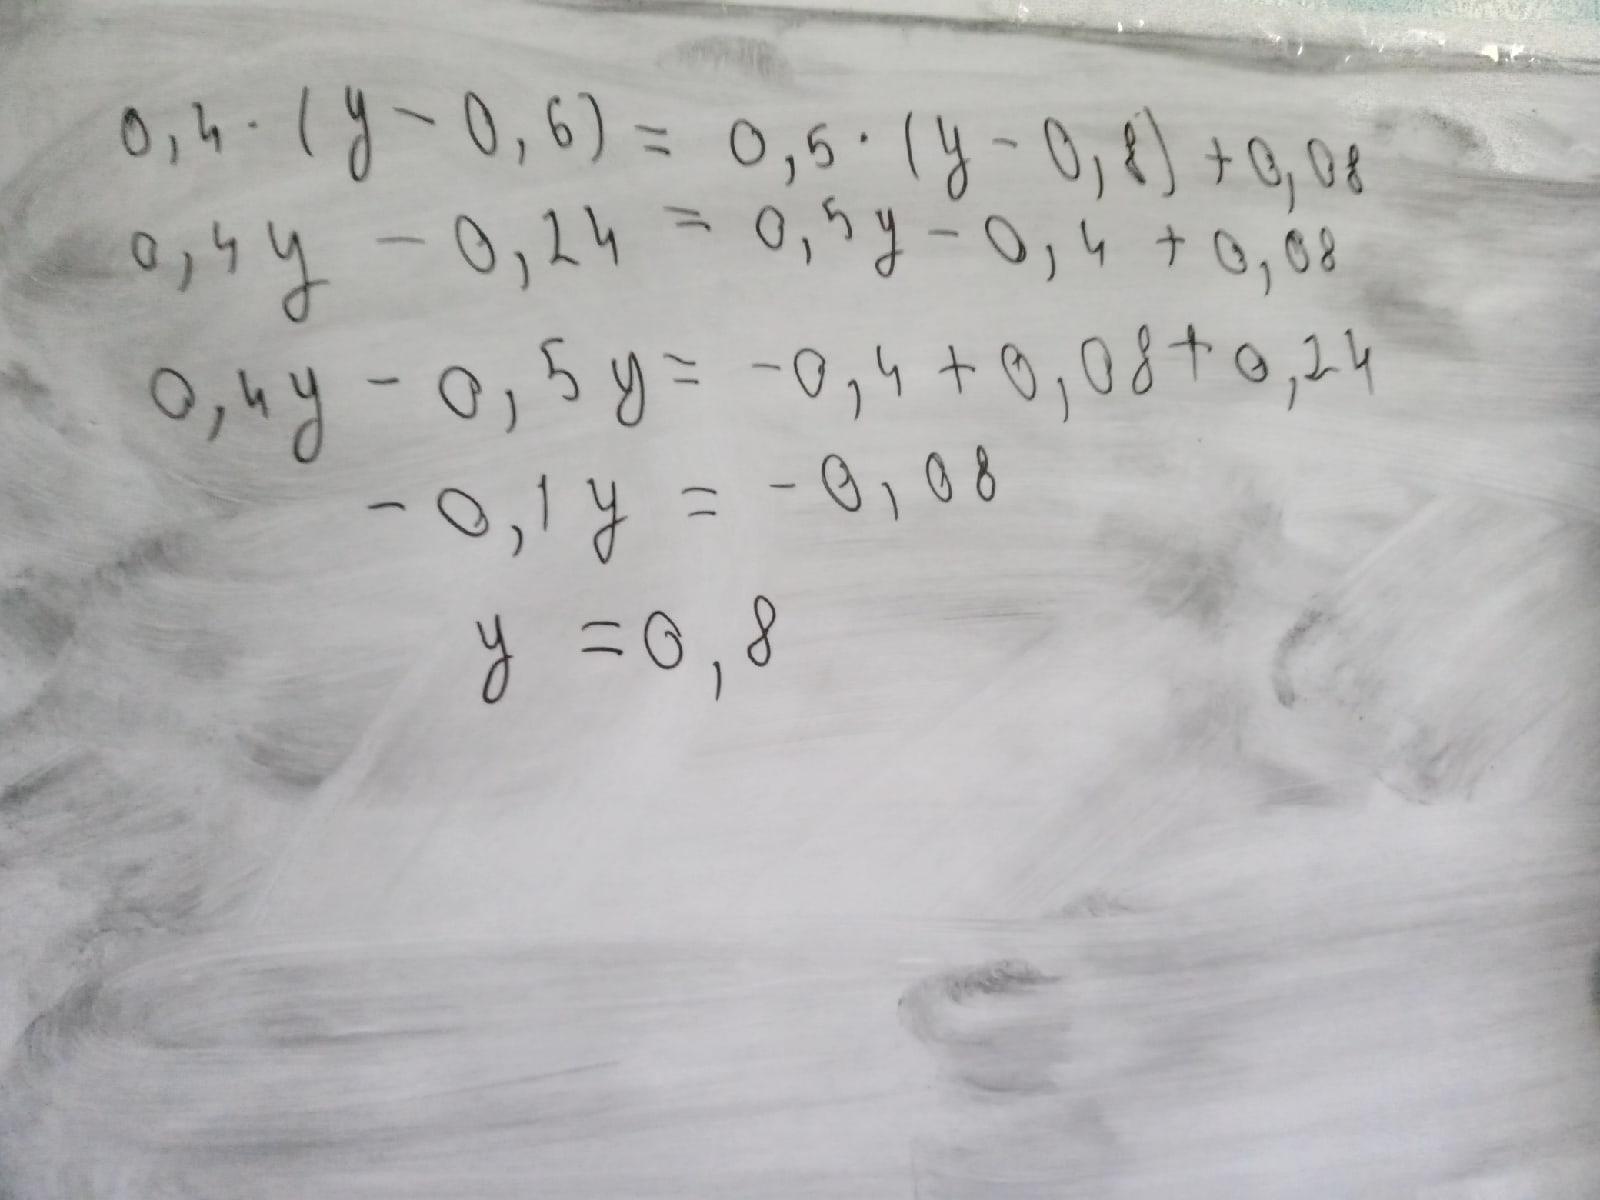 0,4·(y-0,6)=0,5·(y-0,8)+0,08
0,4y-0,24=0,5y-0,4+0,08
0,4y-0,5y=-0,4+0,08+0,24
-0,1y=-0,08
y=0,8